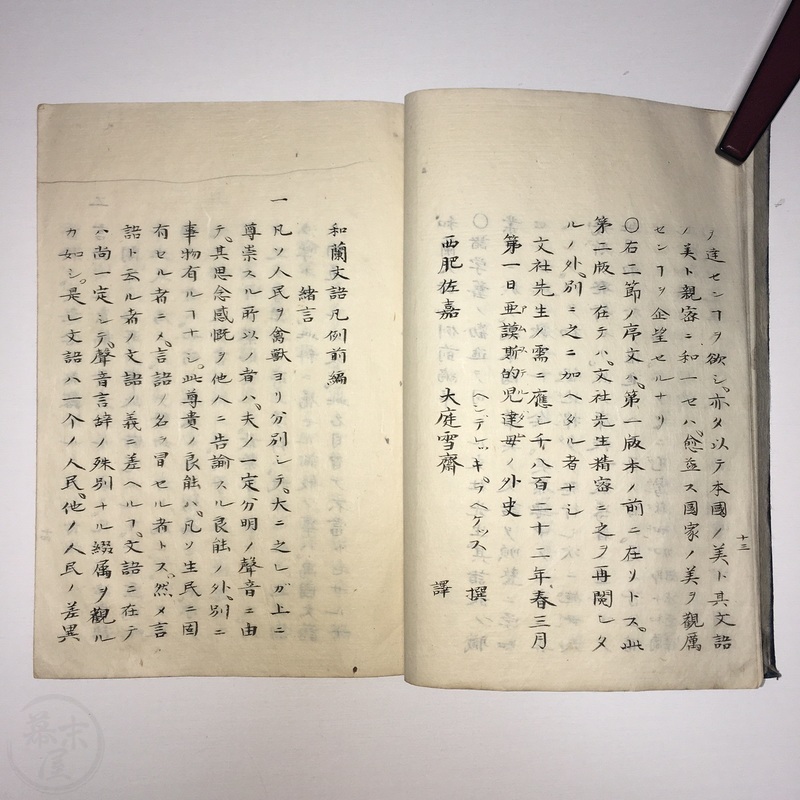 ノ達センヿヲ欲シ亦タ以テ本國ノ美ト其文語
ノ美ト親密ニ和一セハ愈益ス國家ノ美ヲ觀厲
センヿヲ企望セルナリ
〇右二節ノ序文ハ第一版本ノ前ニ在リトス此
第二版ニ在テハ文社先生精密ニ之ヲ再閲シタ
ルノ外別ニ之ニ加ヘタル者ナシ
文社先生ノ需ニ應シ千八百二十二年春三月
第一日亜謨斯的児達毋ノ外史
ヘンデレッキ 撰
西肥佐嘉 大庭雪齋 譯
十三
和蘭文語凡例前編
緒言
一 凡ソ人民ヲ禽獣ヨリ分別シテ大ニ之レガ上ニ
尊崇スル所以ノ者ハ夫ノ一定分明ノ聲音ニ由
テ其思念感慨ヲ他人ニ告諭スル良能ノ外別ニ
事物有ルヿナシ此尊貴ノ良能ハ凡ソ生民ニ固
有セル者ニメ言語ノ名ヲ冒セル者トス然メ言
語ト云ル者ノ文語ノ義ニ差ヘルヿ文語ニ在テ
ハ尚一定シテ聲音言辞ノ殊別ナル綴属ヲ觀ル
カ如シ是レ文語ハ一个ノ人民他ノ人民ノ差異
幕末屋